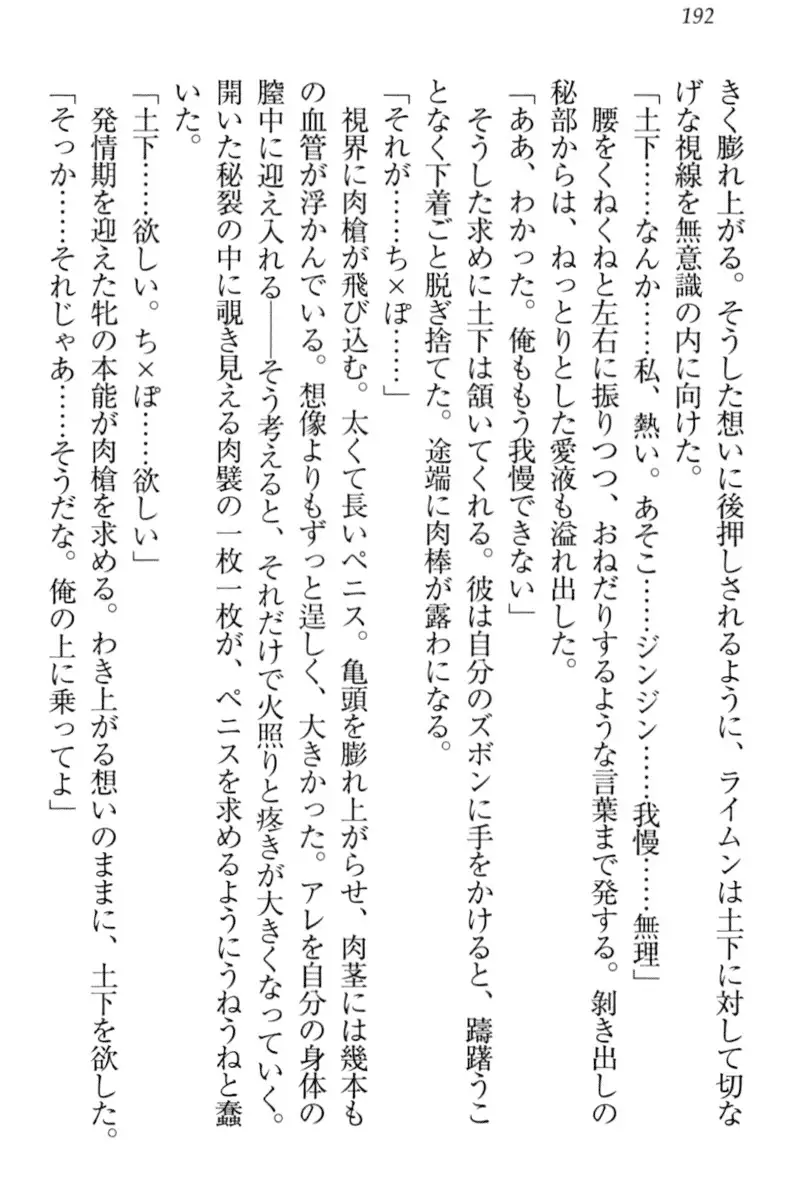 192
きく膨れ上がる。そうした想いに後押しされるように、ライムンは土下に対して切な
げな視線を無意識の内に向けた。
「土下……なんか……私、熱い。あそこ……ジンジン……我慢……無理」
腰をくねくねと左右に振りつつ、おねだりするような言葉まで発する。剝き出しの
秘部からは、ねっとりとした愛液も溢れ出した。
「ああ、わかった。俺ももう我慢できない」
そうした求めに土下は頷いてくれる。彼は自分のズボンに手をかけると、躊躇うこ
となく下着ごと脱ぎ捨てた。途端に肉棒が露わになる。
「それが……ち×ぽ……」
視界に肉槍が飛び込む。太くて長いペニス。亀頭を膨れ上がらせ、肉茎には幾本も
の血管が浮かんでいる。想像よりもずっと逞しく、大きかった。アレを自分の身体の
膣中に迎え入れる――そう考えると、それだけで火照りと疼きが大きくなっていく。
開いた秘裂の中に覗き見える肉襞の一枚一枚が、ペニスを求めるようにうねうねと蠢
いた。
「土下……欲しい。ち×ぽ……欲しい」
発情期を迎えた牝の本能が肉槍を求める。わき上がる想いのままに、土下を欲した。
「そっか……それじゃあ……そうだな。俺の上に乗ってよ」